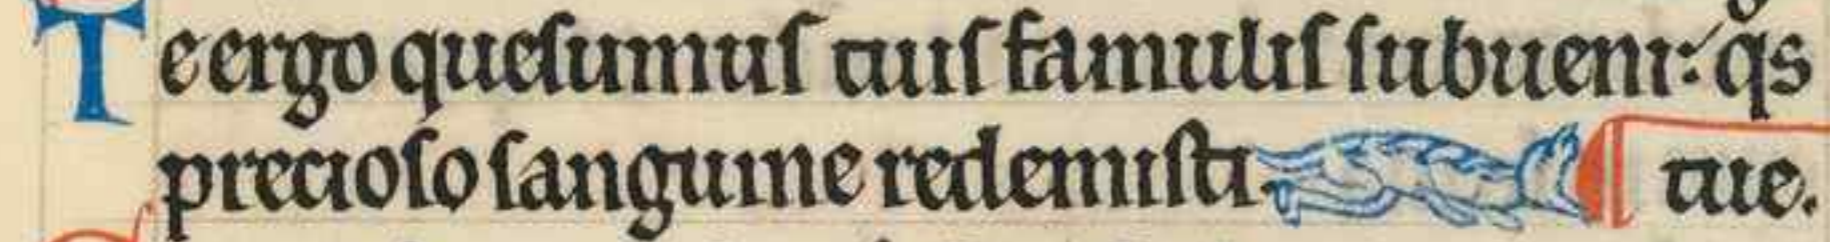 Te ergo quesumus tuis famulis subueni: qͥs
precioso sanguine redemisti. tue.